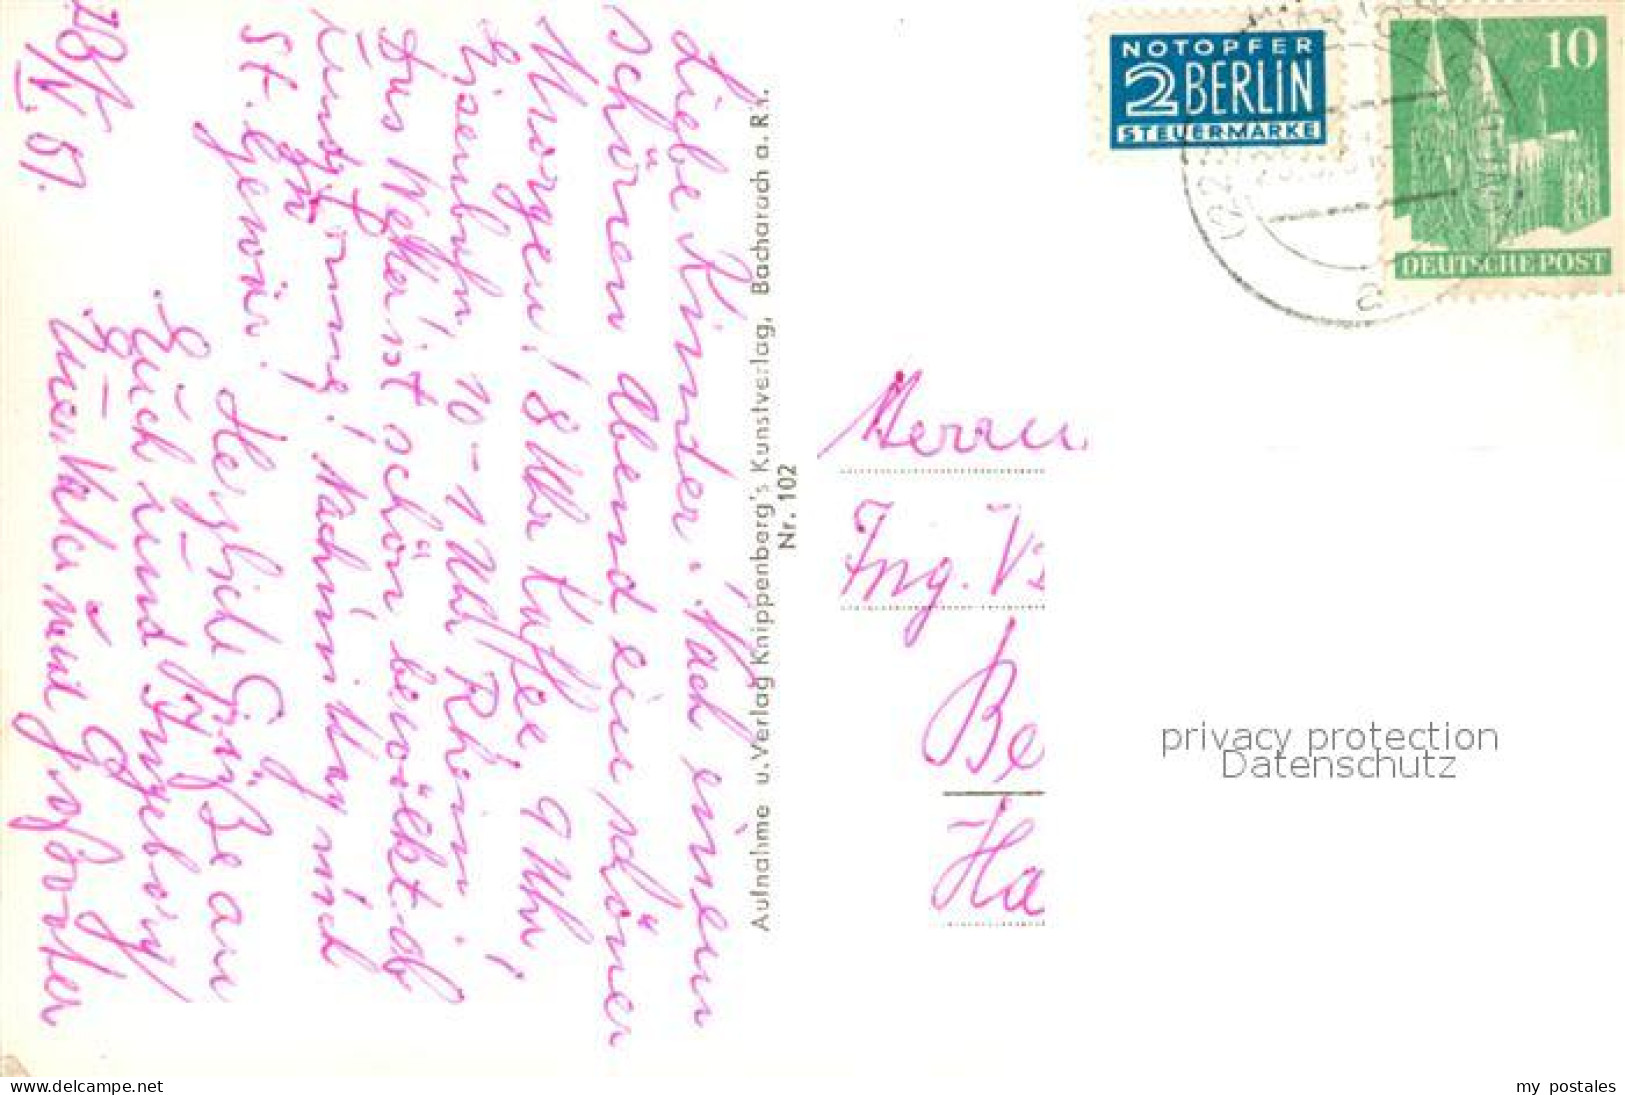 28/IV. 51.
Liebe Kinder. Nach einem
schönen Abend ein schöner
Morgen! 8 Uhr Kaffee 9 Uhr
Eisenbahn, 10–1 Uhr Rhein.
Das Wetter ist schön bewölkt
Rundfunk! Nachmittag nach
St. Goar.
Herzliche Grüße an
Euch und Ingeborg
Euer Vater und Großvater
Aufnahme u. Verlag Knippenberg's Kunstverlag, Bacharach a. Rh.
Nr. 102
NOTOPFER
2 BERLIN
STEUERMARKE
10
DEUTSCHE POST
a
Herrn
Ing.
Be
Ha
privacy protection
Datenschutz
www.delcampe.net
my_postales